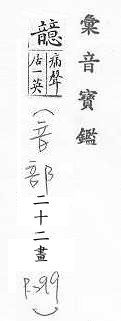 彙音寶鑑
痛聲
居一英
(音部二十二畫
)